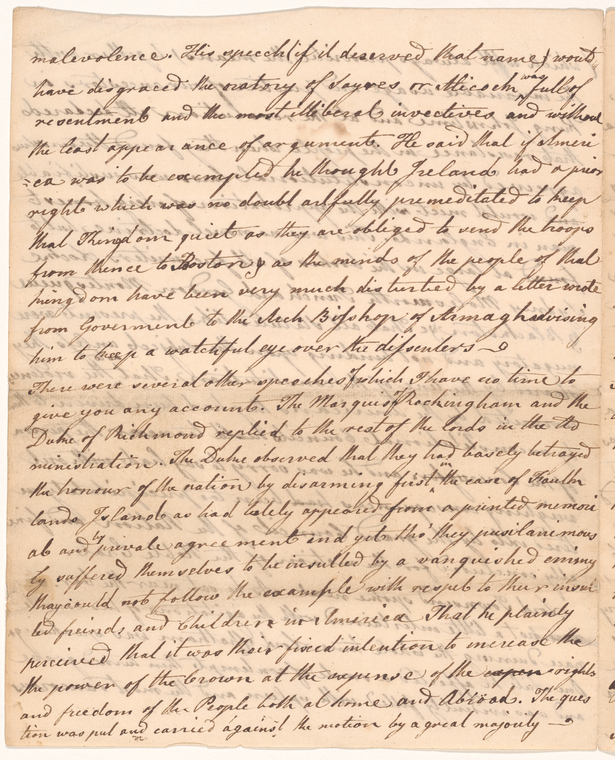 malevolence. His speech (if it deserved that name) would
have disgraced the oratory of Sayres or Aticoch was full of
resentment and the most illiberal invectives and without
the least appearance of argument. He said that if Ameri
=ca was to be exempted he thought Ireland had a prior
right which was no doubt artfully premeditated to keep
that Kingdom quiet as they are obliged to send the troops
from thence to Boston & as the minds of the people of that
kingdom have been very much disturbed by a letter wrote
from Goverment to the Arch Bishop of Armagh advising
him to keep a watchful eye over the dissenters
There were several other speeches which I have no time to
give you any account. The Marquis of Rockingham and the
Duke of Richmond replied to the rest of the lords in the Ad
ministration. The Duke observed that they had basely betrayed
the honour of the nation by disarming first in the case of Faulk
lands Island as had lately appeared from a printed memori
al and by private agreement and yet tho' they pusilanimous
ly suffered themselves to be insulted by a vanquished enimy
they could not follow the example with respect to their insul
ted freinds and Children in America That he plainly
perceived that it was their fixed intention to increase the
the power of the Crown at the expense of the expen rights
and freedom of the People both at home and Abroad. The ques
tion was put and carried against the motion by a great majority